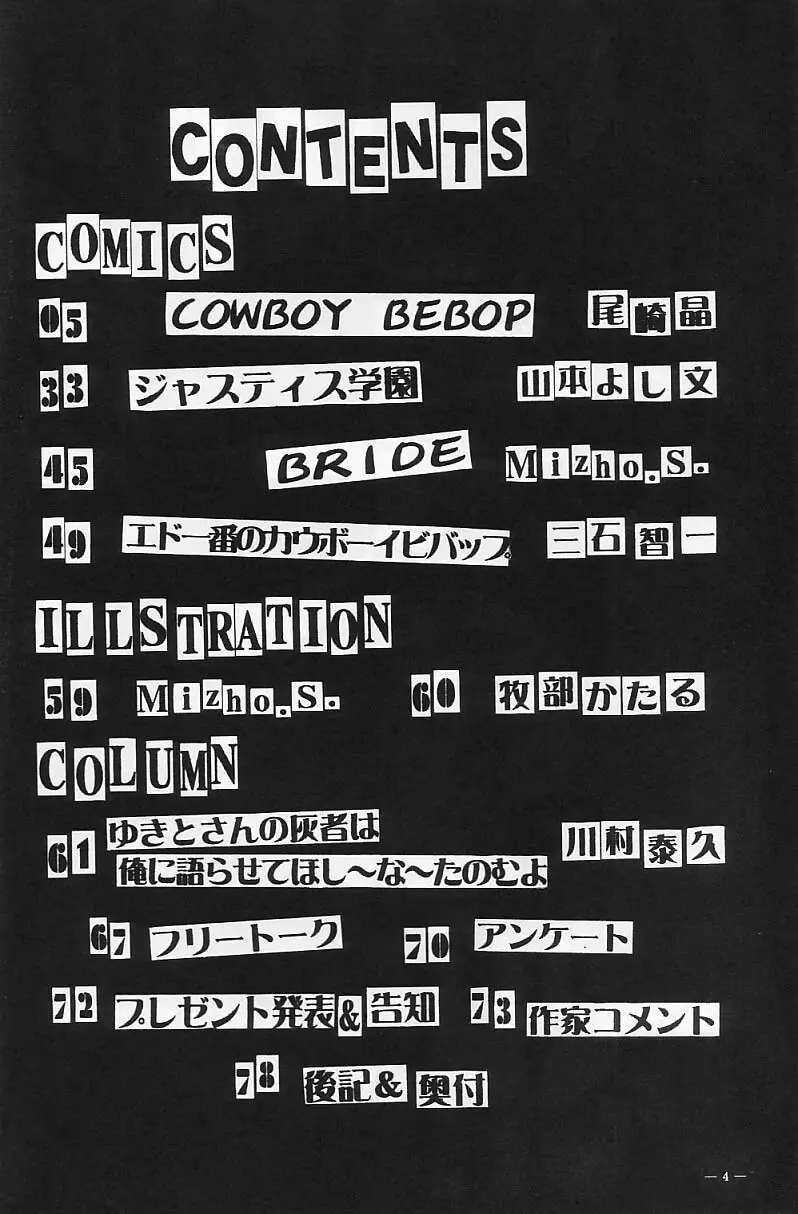 CONTENTS
COMICS
05 COWBOY BEBOP 尾崎晶
33 ジャスティス学園 山本よし文
45 BRIDE Mizho.S.
49 エド一番のカウボーイビバップ 三石智一
ILLSTRATION
59 Mizho.S. 60 牧部かたる
COLUMN
61 ゆきとさんの灰者は
俺に語らせてほし～な～たのむよ 川村泰久
67 フリートーク 70 アンケート
72 プレゼント発表&告知 73 作家コメント
78 後記&奥付
— 4 —